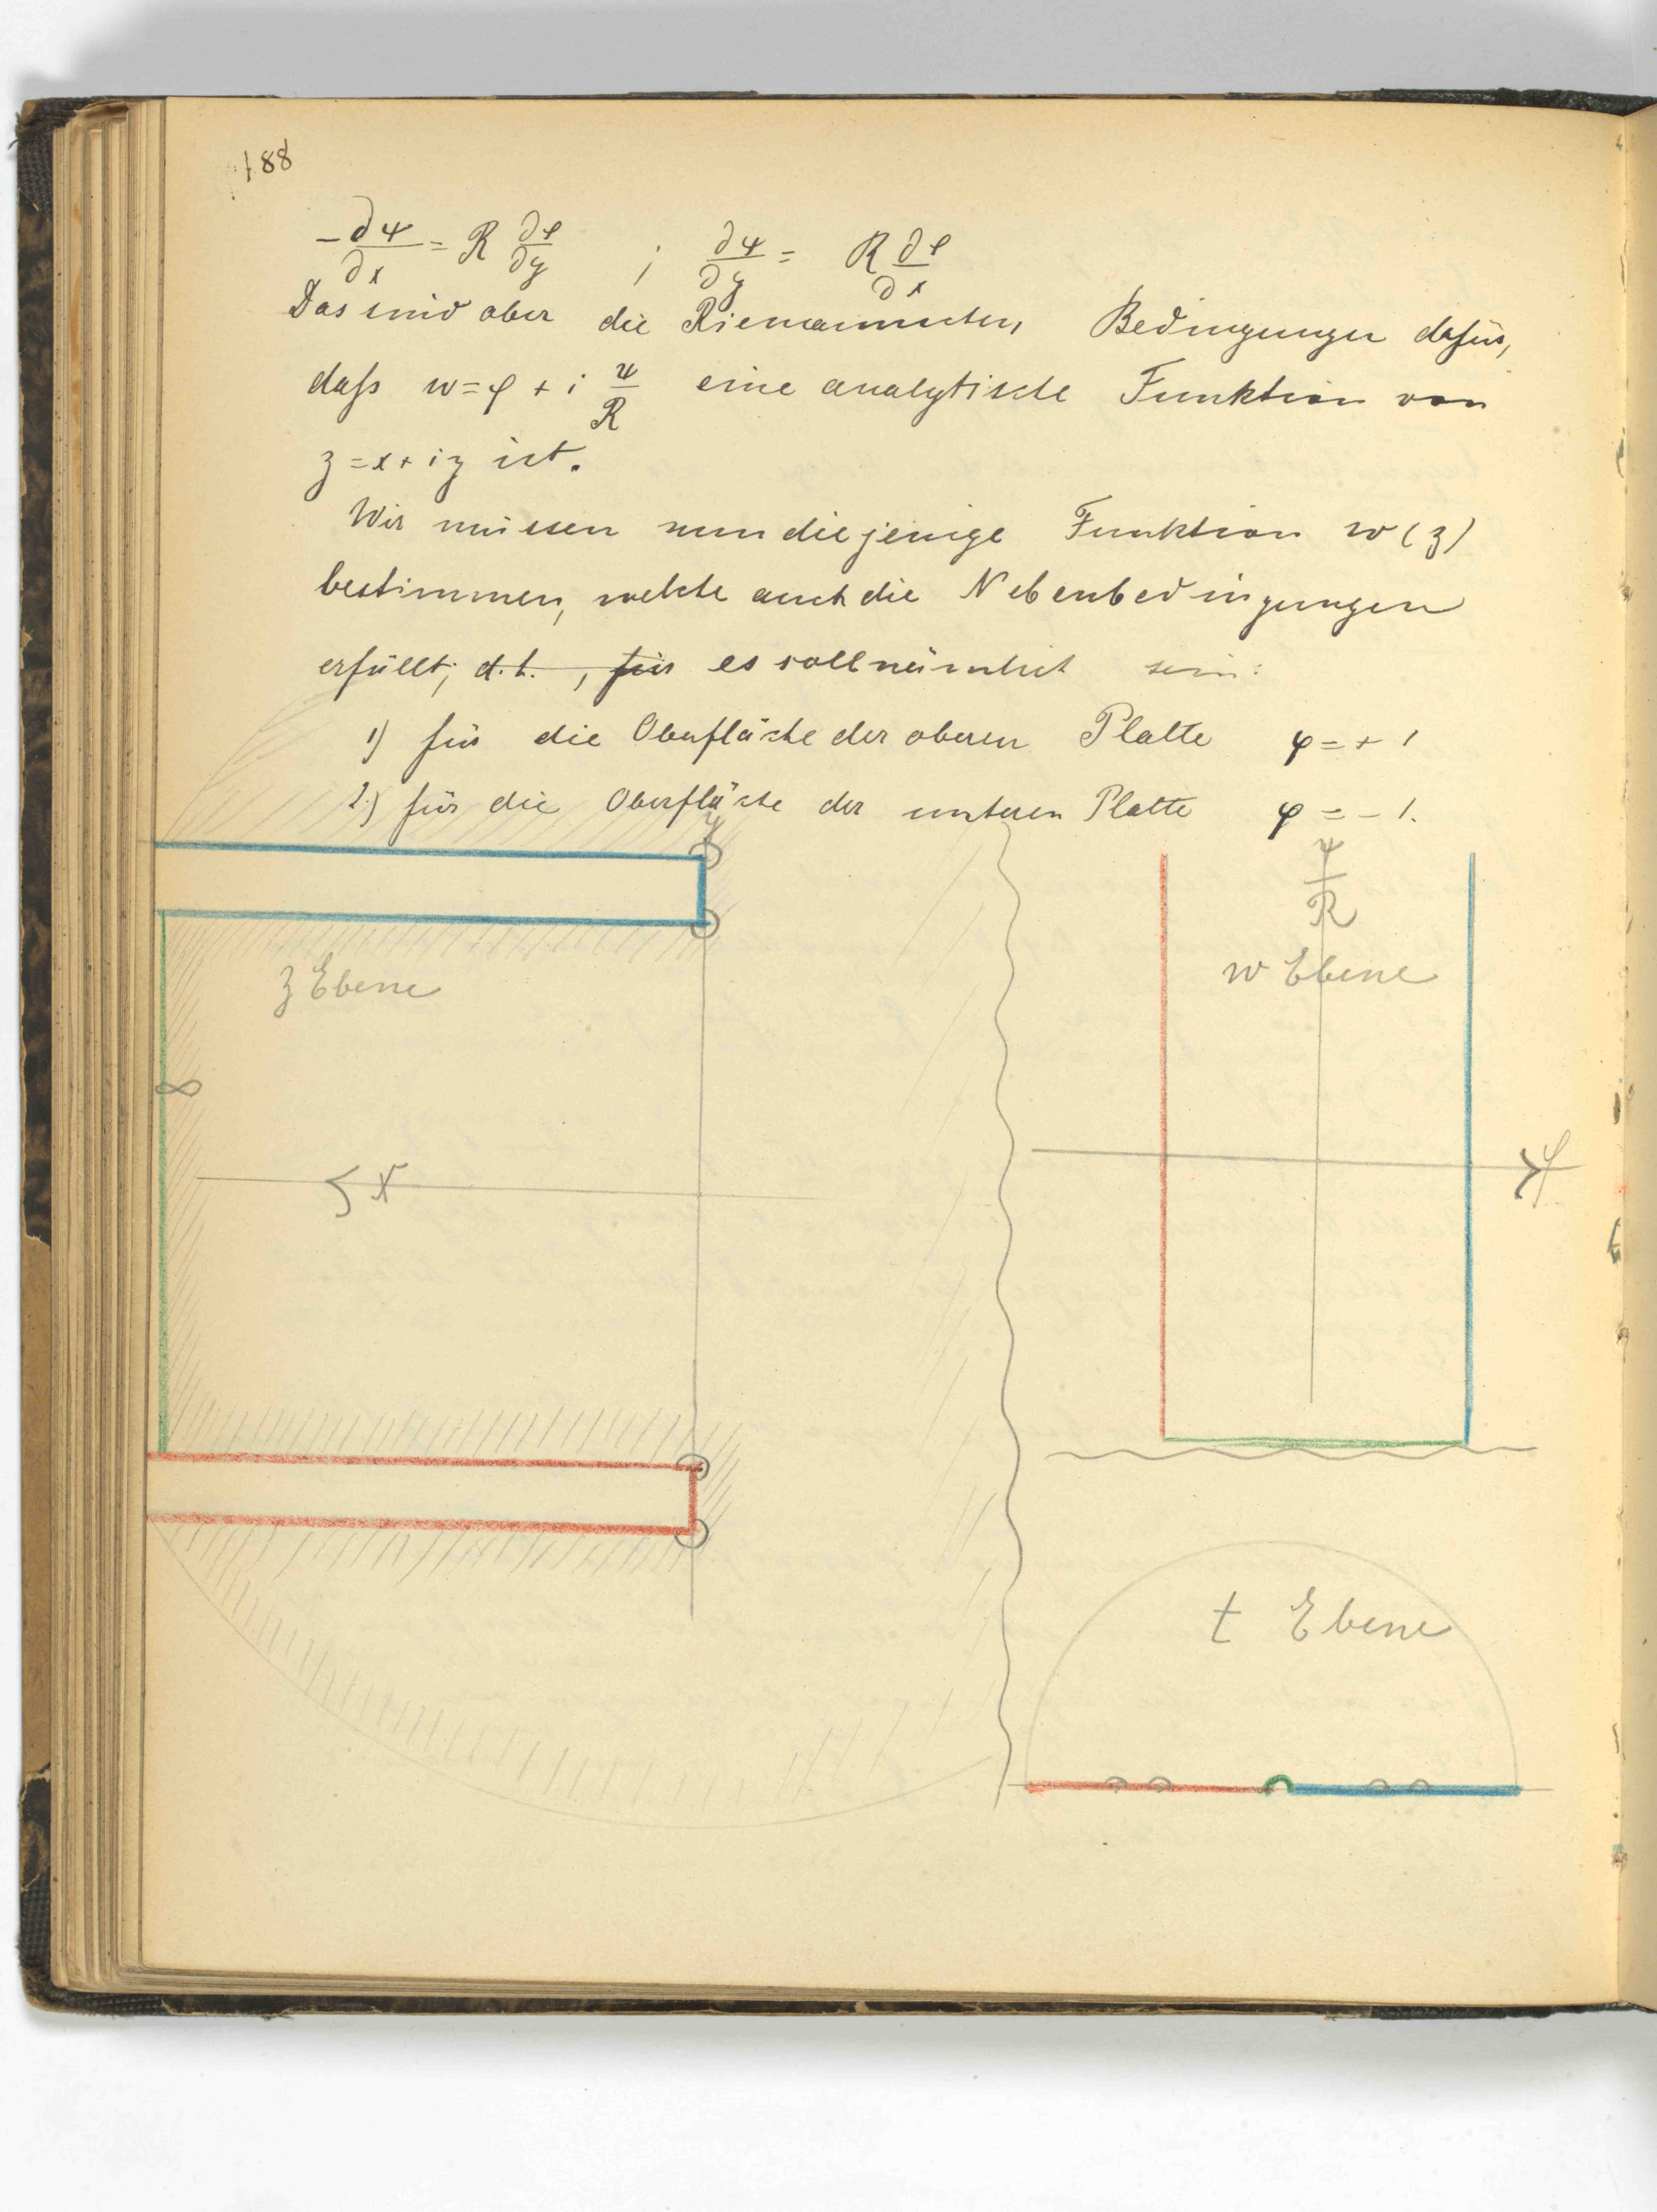 188
−∂ψ/∂x = R ∂φ/∂y ; ∂ψ/∂y = R ∂φ/∂x
Das sind aber die Riemannschen Bedingungen dafür,
daß w=φ + i ψ/R eine analytische Funktion von
z=x+iy ist.
Wir müssen nun diejenige Funktion w(z)
bestimmen, welche auch die Nebenbedingungen
erfüllt; d.h. , für es soll nämlich sein:
1) für die Oberfläche der oberen Platte φ=+1
2.) für die Oberfläche der unteren Platte φ=−1.
y
ψ/R
z Ebene
w Ebene
∞
x
φ
t Ebene